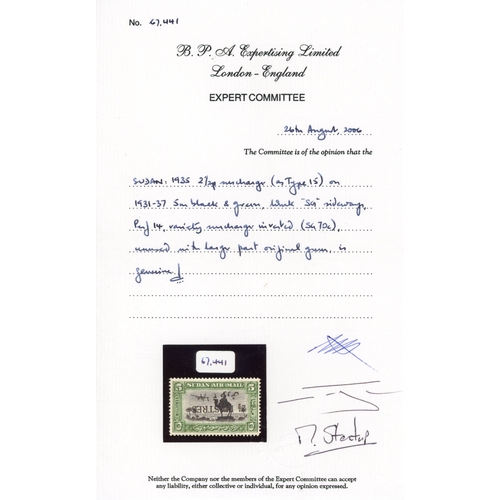 No. 67,441
B. P. A. Expertising Limited
London – England
EXPERT COMMITTEE
26th August, 2006
The Committee is of the opinion that the
SUDAN: 1935 2½p surcharge (as Type 15) on
1931-37 5m black & green, Wmk "SG" sideways,
Perf 14, variety surcharge inverted (SG 70c),
unused with large part original gum, is
genuine.
67,441
5 SUDAN AIR MAIL 5
Neither the Company nor the members of the Expert Committee can accept
any liability, either collective or individual, for any opinion expressed.